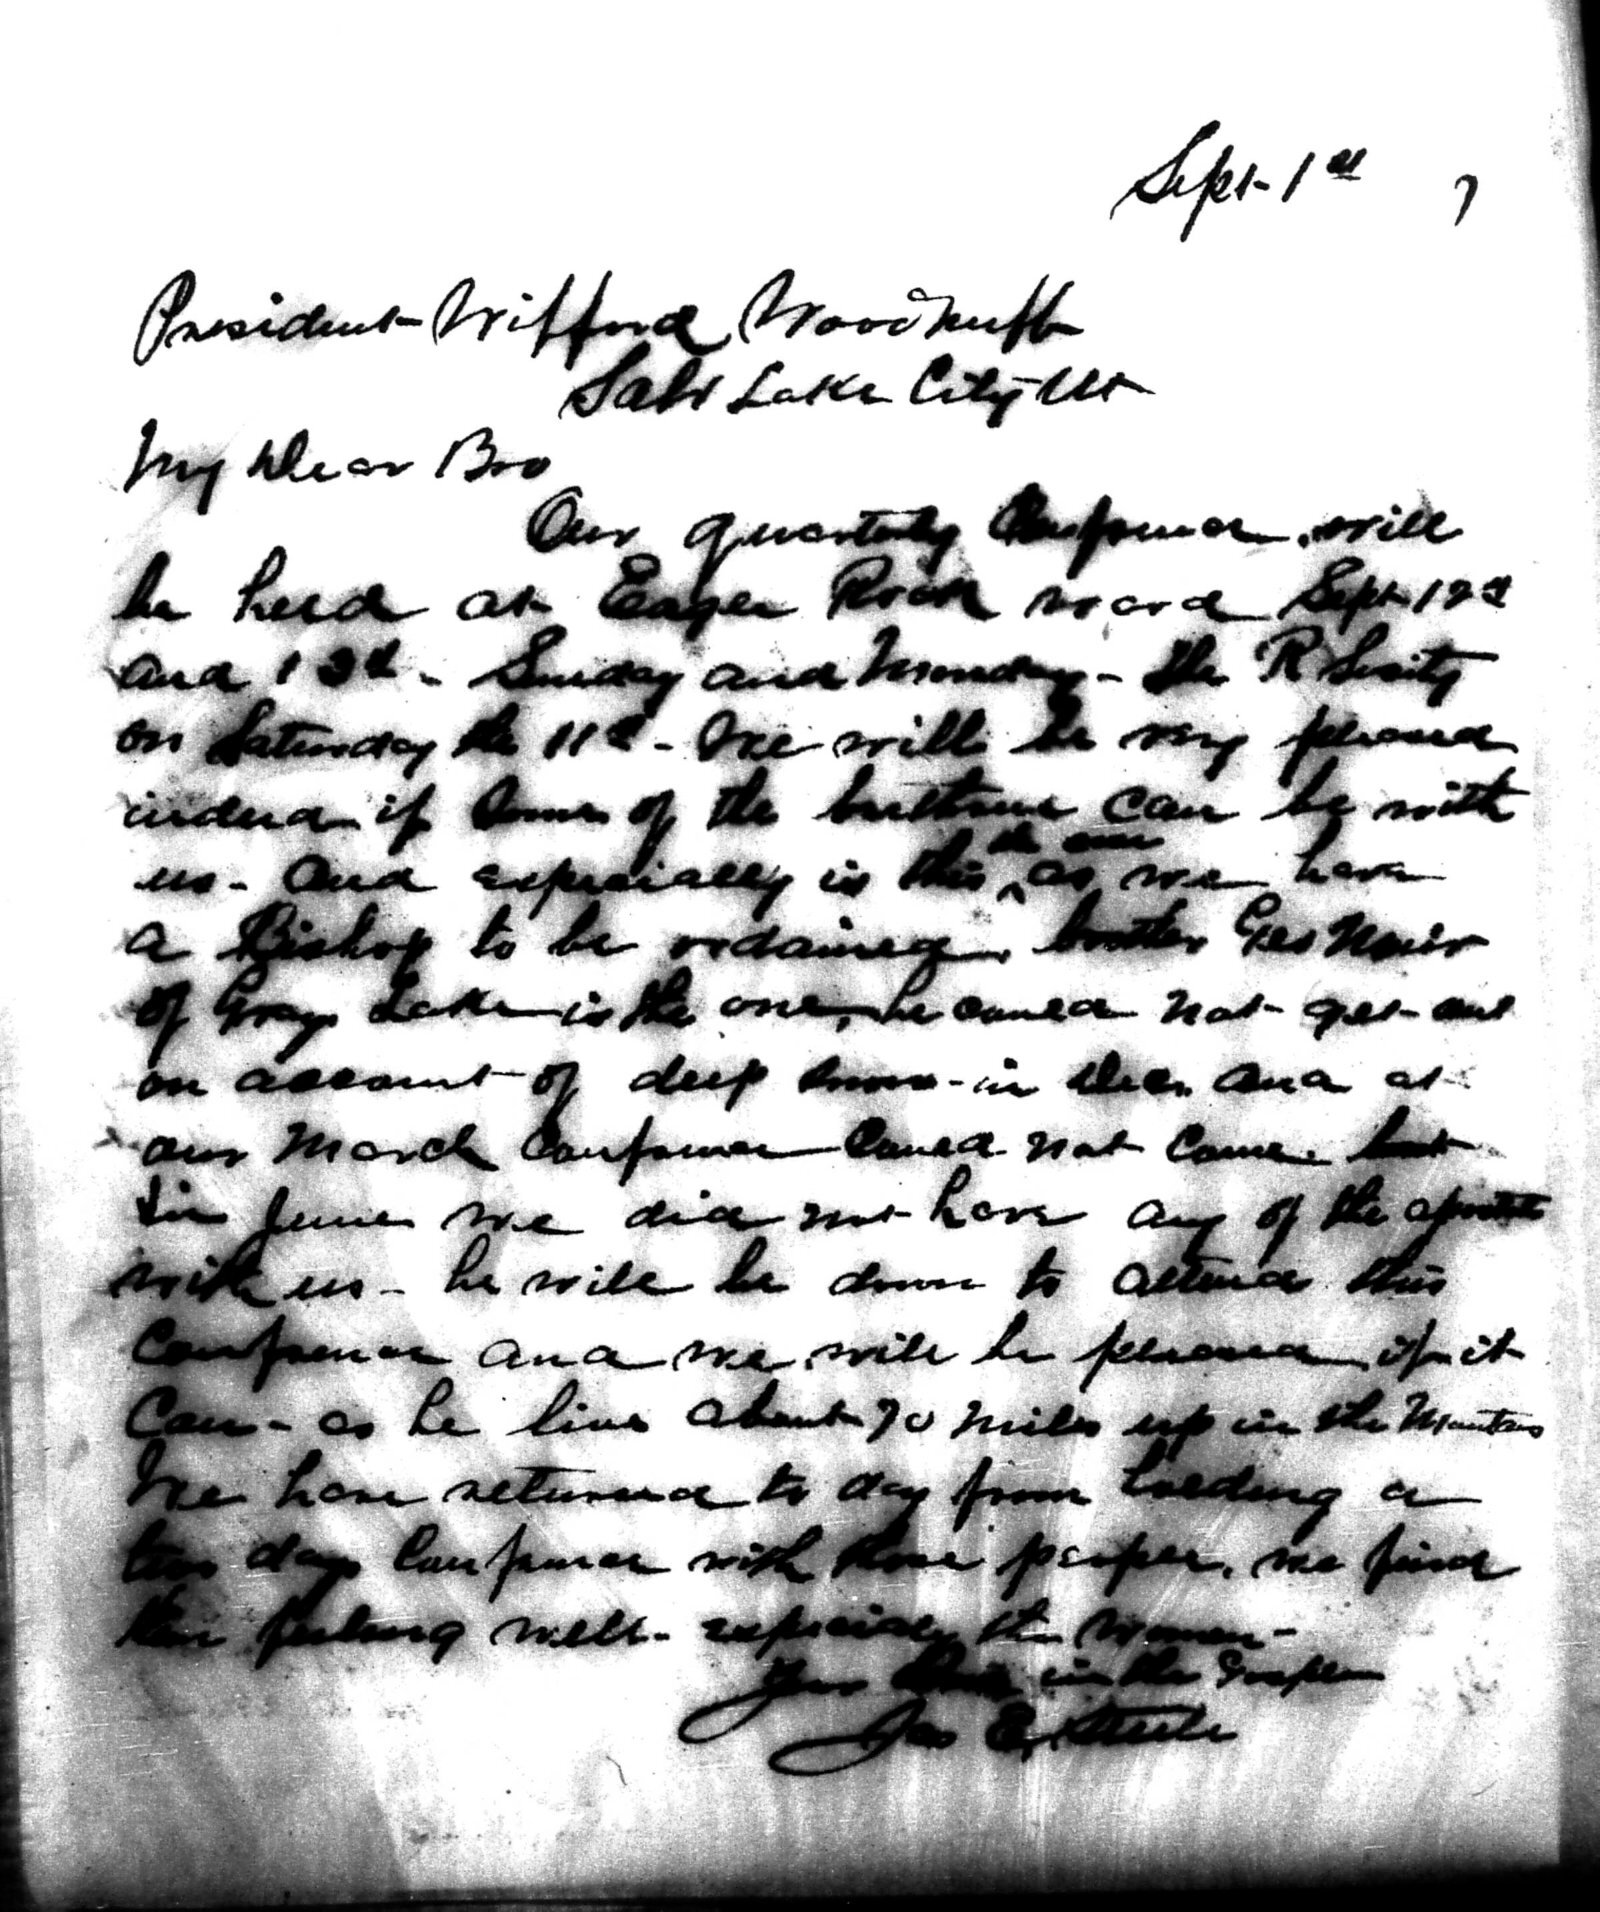 Sept 1st 7
President Wilford Woodruff
Salt Lake City Ut
My Dear Bro
Our quarterly Conference will
be held at Eagle Rock ward Sept 12th
and 13th - Sunday and Monday - the R Society
on Saturday the 11th - We will be very pleased
indeed if some of the brethren can be with
us - and especially is this the case as we have
a Bishop to be ordained, brother Geo Muir
of Grays Lake is the one, he could not get out
on account of deep snow - in Dec. and at
our March Conference could not come. but
in June we did not have any of the apostles
with us - he will be down to attend this
Conference and we will be pleased if it
Can - as he live about 70 miles up in the Mountains
We have returned to day from holding a
two days Conference with those people, we find
them feeling well - especially the women -
Your in the Gospel
Jas E. Steele